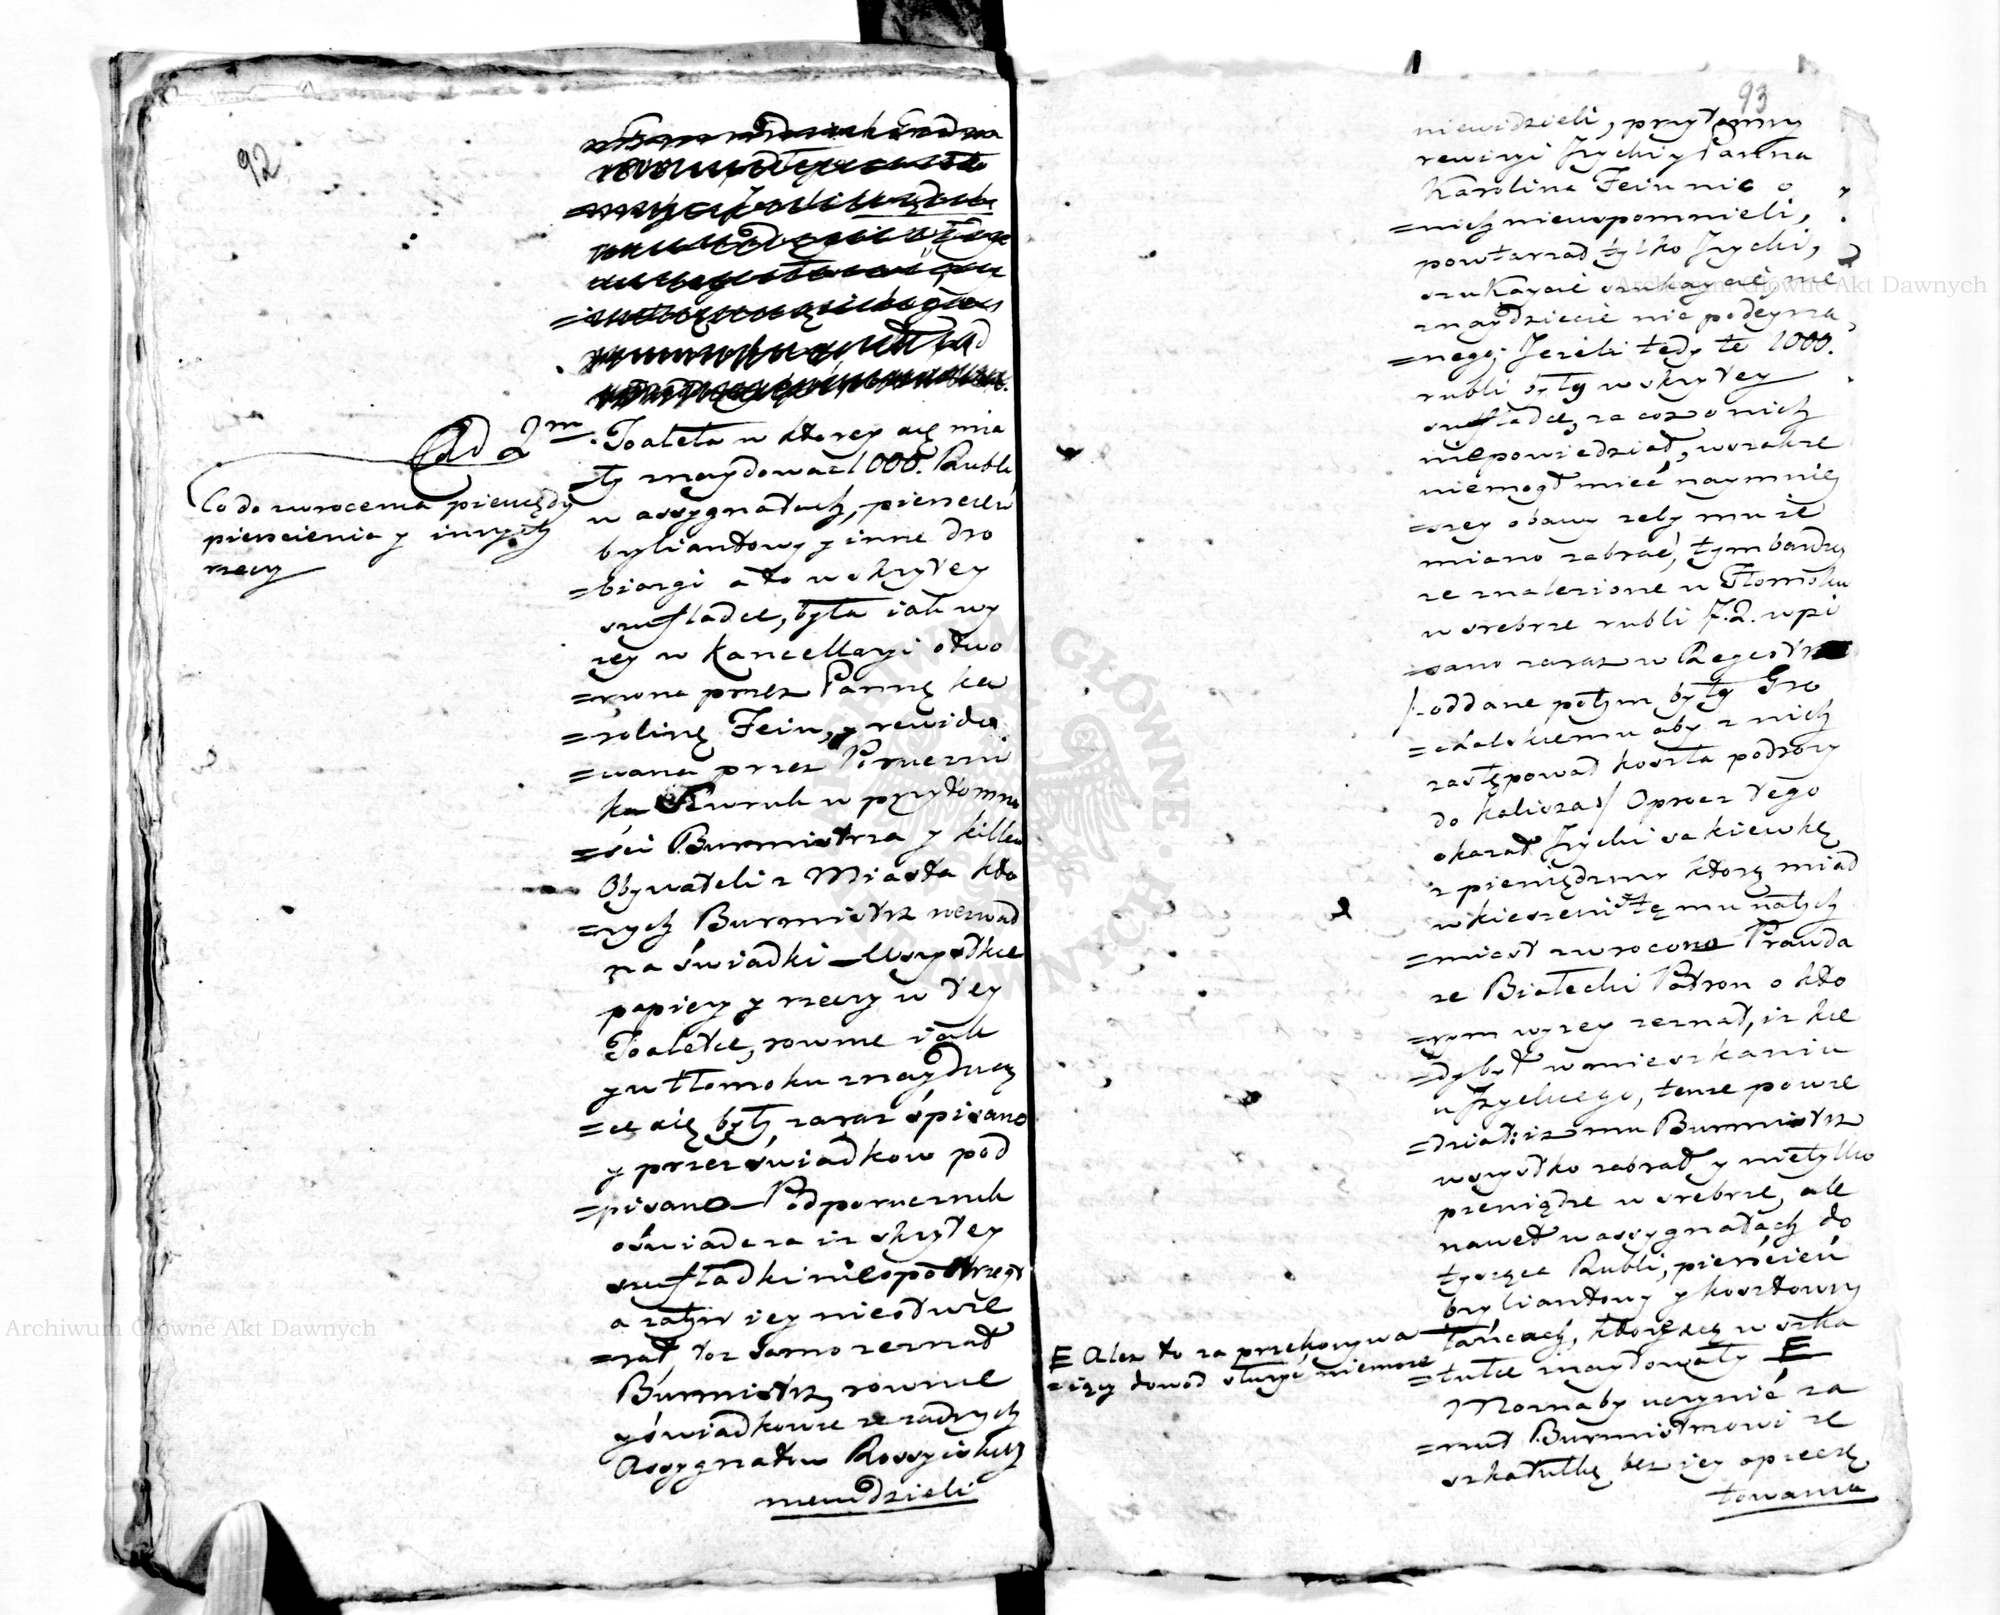 92
Ad 2m
Co do zwrocenia pieniędzy
pierscienia y innych
rzeczy
Toaleta w ktorey się mia
=ły znaydować 1000. Rubli
w assygnatach, pierscień
bryliantowy y inne dro
=biazgi a to w skrytey
szufladce, była iak wy
żey w Kancellaryi otwo
=rzona przez Pannę Ka
=rolinę Fein, y rewido
=wana przez Poruczni
ka w przytomno
=ści Burmistrza y kilku
Obywateli z Miasta kto
=rych Burmistrz wezwał
na świadki – Wszystkie
papiery y rzeczy w tey
Toaletce, rownie iak
y w tłomoku znayduią
=ce się były zaraz spisano
y przez swiadkow pod
=pisano – Podporucznik
oświadcza iż skrytey
szufladki niespostrzegł
a zatym iey nieotwie
=rał, toż samo zeznał
Burmistrz, rownie
y świadkowie że żadnych
Assygnatow Rossyiskich
niewidzieli
93
niewidzieli, przytomny
rewizyi Jzycki y Panna
Karolina Fein nic o
=nich niewspomnieli,
powtarzał tylko Jzycki,
szukaycie szukaycie nie
znaydziecie nic podeyrza
=nego; Jeżeli tedy te 1000.
rubli były w skrytey
szufladce, za coż o nich
niepowiedział, wszakże
niemogł mieć naymniey
=szey obawy żeby mu ie
miano zabrać, tym bardziey
że znalezione w Tłomoku
w srebrze rubli 72. wpi
=sano zaraz w Regestr
/: oddane potym były Gro
=chalskiemu aby z nich
zastępował koszta podrozy
do Kalisza :/ Oprocz tego
okazał Jzycki sakiewkę
z pieniędzmi ktorę miał
w kieszeni tę mu natych
=miast zwrocono Prawda
że Białecki Patron o kto
=rym wyżey zeznał, iż kie
=dy był w mieszkaniu
u Jzyckiego, tenże powie
=dział iż mu Burmistrz
wszystko zabrał y nietylko
pieniądze w srebrze, ale
nawet w assygnatach do
tysiąca Rubli, pierścień
bryliantowy y kosztowny
łańcuch, ktore się w szka
=tułce znaydowały E
E Ależ to za przekonywa
=iący dowod służyć niemoże
Možnaby uczynić za
=rzut Burmistrzowi że
szkatułkę bez iey opieczę
towania
Archiwum Główne Akt Dawnych
Archiwum Główne Akt Dawnych
ARCHIWUM GŁÓWNE AKT DAWNYCH